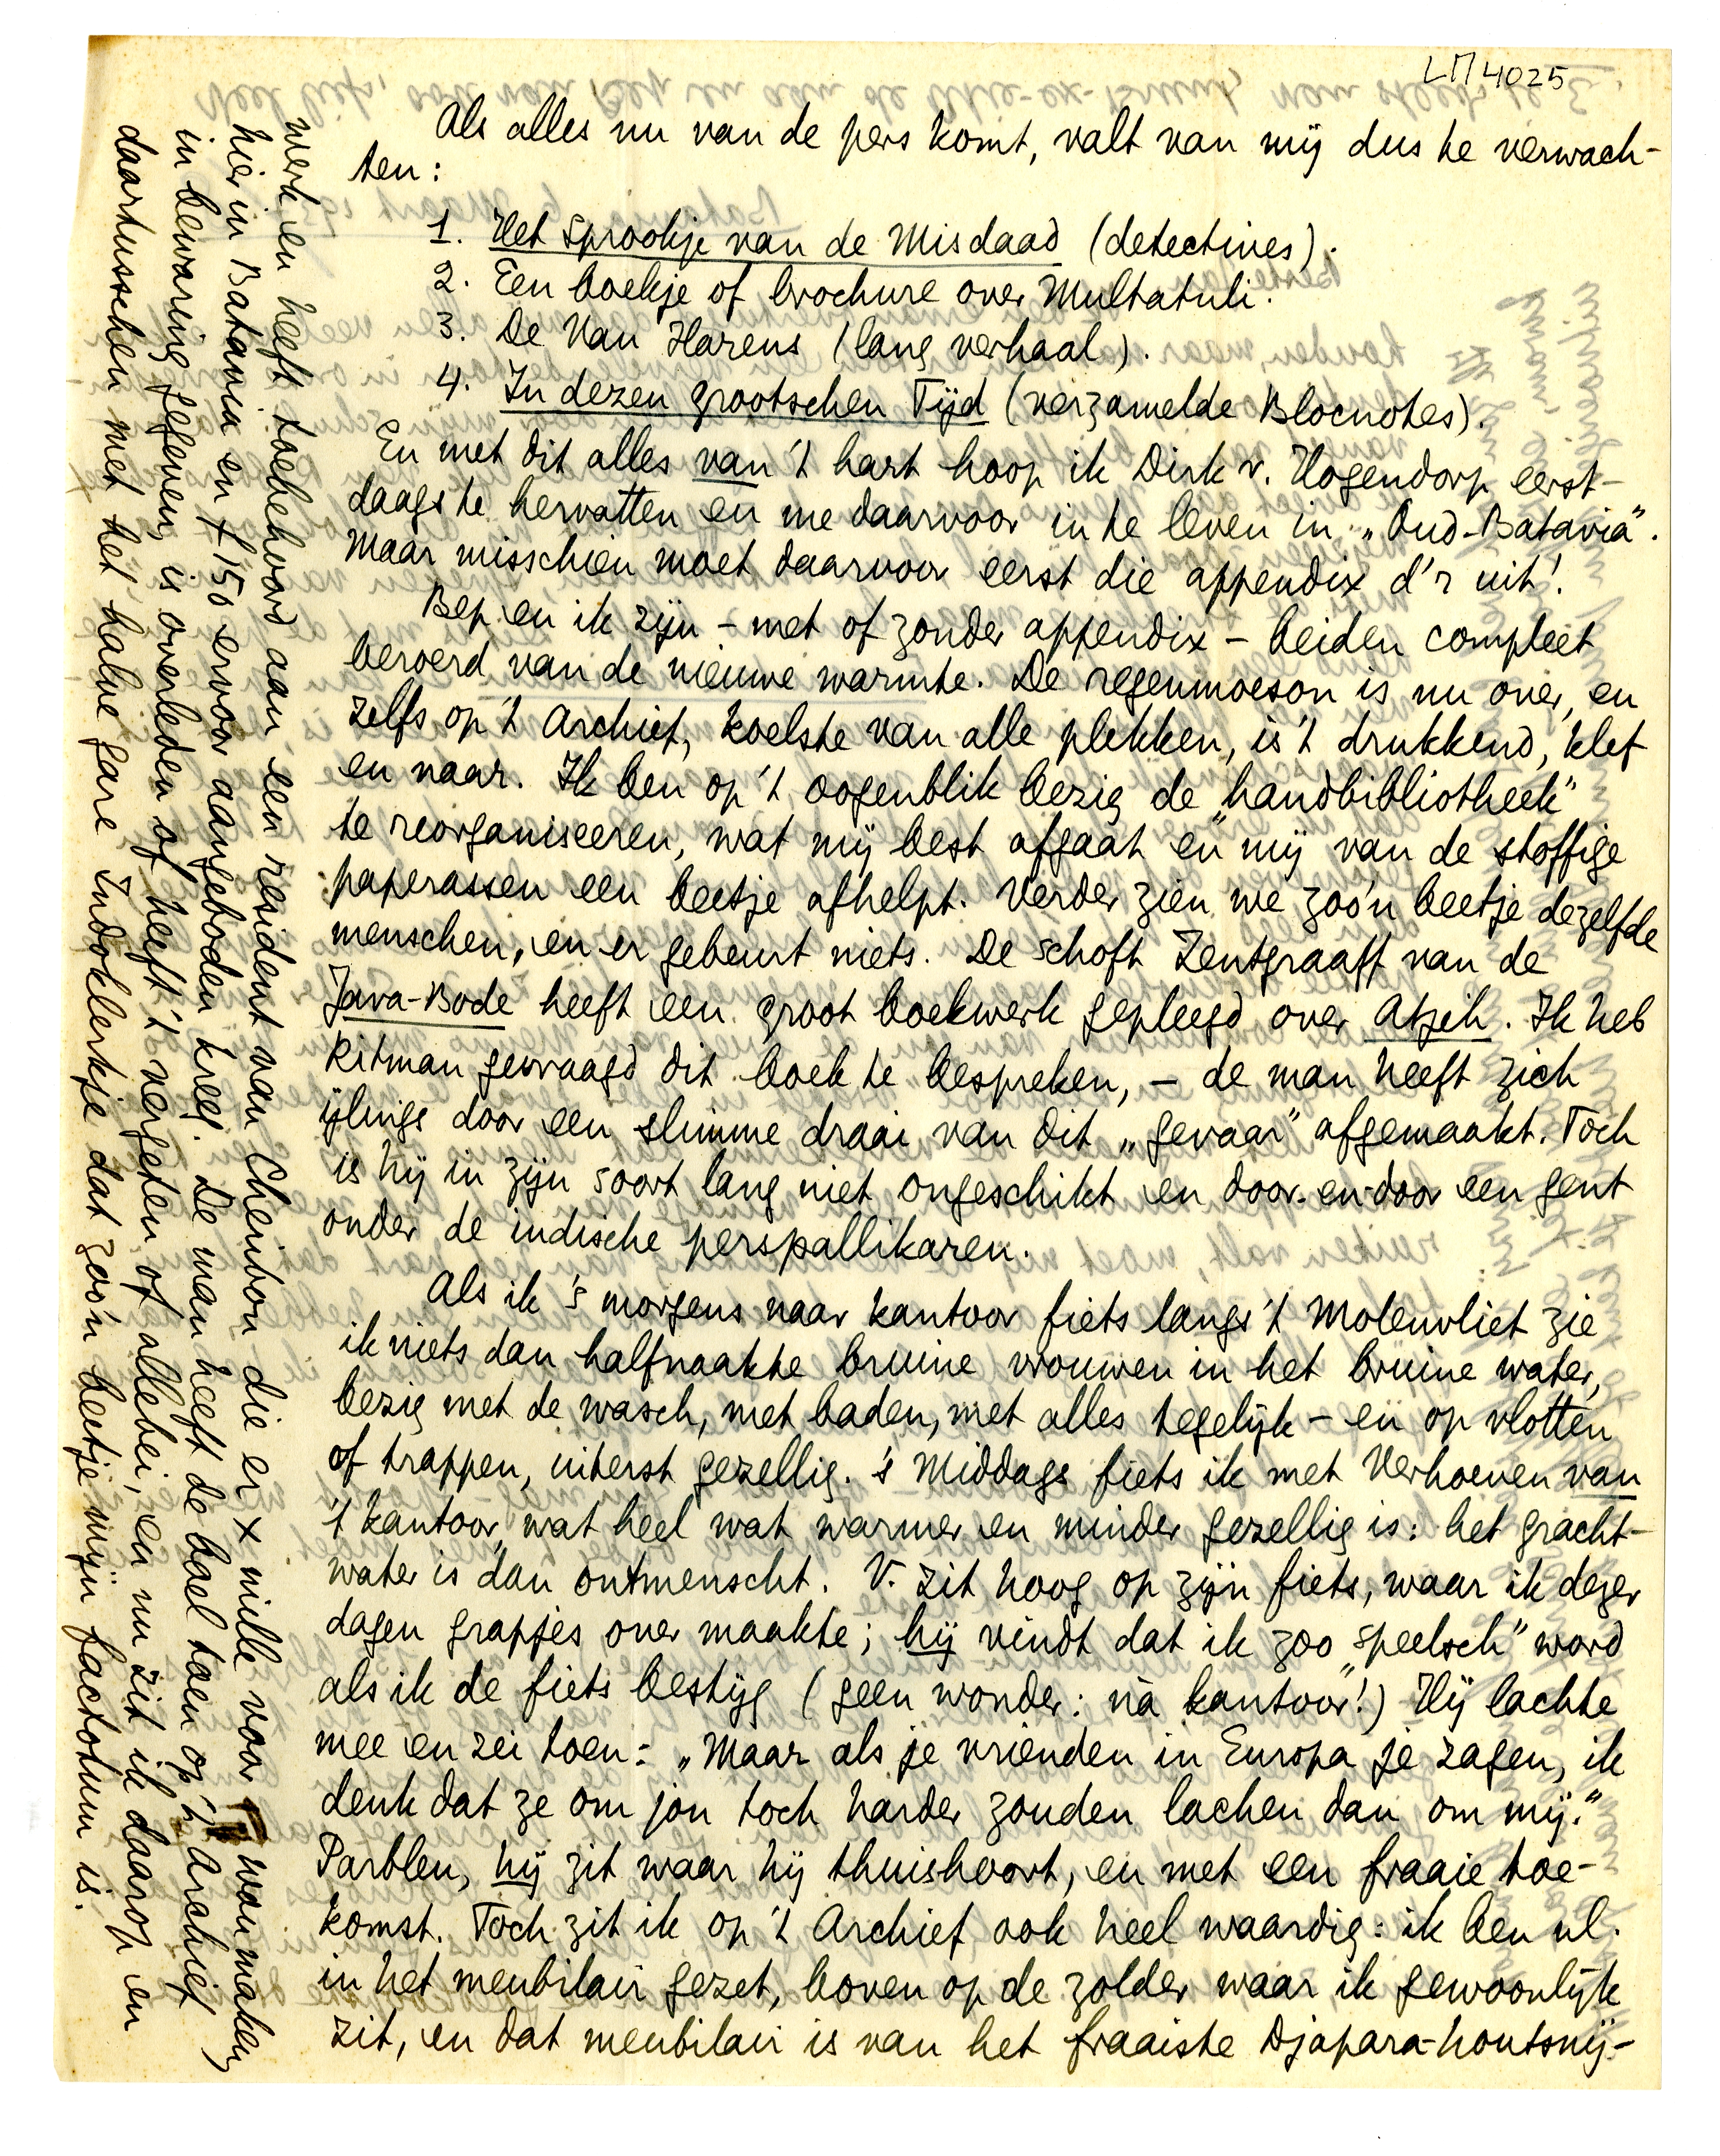 LM 4025
Als alles nu van de pers komt, valt van mij dus te verwach-
ten:
1. Het Sprookje van de Misdaad (detectives).
2. Een boekje of brochure over Multatuli.
3. De Van Harens (lang verhaal).
4. In dezen grootschen Tijd (verzamelde Blocnotes).
En met dit alles van 't hart hoop ik Dirk v. Hogendorp eerst-
daags te hervatten en me daarvoor in te leven in „Oud-Batavia".
Maar misschien moet daarvoor eerst die appendix d'r uit!
Bep en ik zijn – met of zonder appendix – beiden compleet
beroerd van de nieuwe warmte. De regenmoeson is nu over, en
zelfs op 't Archief, koelste van alle plekken, is 't drukkend, klef
en naar. Ik ben op 't oogenblik bezig de „handbibliotheek"
te reorganiseeren, wat mij best afgaat en mij van de stoffige
paperassen een beetje afhelpt. Verder zien we zoo'n beetje dezelfde
menschen, en er gebeurt niets. De schoft Zentgraaff van de
Java-Bode heeft een groot boekwerk gepleegd over Atjeh. Ik heb
Ritman gevraagd dit boek te bespreken, – de man heeft zich
ijlings door een slimme draai van dit „gevaar" afgemaakt. Toch
is hij in zijn soort lang niet ongeschikt en door-en-door een gent
onder de indische perspallikaren.
Als ik 's morgens naar kantoor fiets langs 't Molenvliet zie
ik niets dan halfnaakte bruine vrouwen in het bruine water,
bezig met de wasch, met baden, met alles tegelijk – en op vlotten
of trappen, uiterst gezellig. 's Middags fiets ik met Verhoeven van
't kantoor, wat heel wat warmer en minder gezellig is: het gracht-
water is dan ontmenscht. V. zit hoog op zijn fiets, waar ik dezer
dagen grapjes over maakte; hij vindt dat ik zoo „speelsch" word
als ik de fiets bestijg (geen wonder: ná kantoor!) Hij lachte
mee en zei toen: „Maar als je vrienden in Europa je zagen, ik
denk dat ze om jou toch harder zouden lachen dan om mij."
Parbleu, hij zit waar hij thuishoort, en met een fraaie toe-
komst. Toch zit ik op 't Archief ook heel waardig: ik ben nl.
in het meubilair gezet, boven op de zolder waar ik gewoonlijk
zit, en dat meubilair is van het fraaiste Djapara-houtsnij-
werk en heeft toebehoord aan een resident van Cheribon die er × mille voor wou maken,
hier in Batavia en f 150 ervoor aangeboden kreeg. De man heeft de boel toen op 't Archief
in bewaring gegeven, is overleden of heeft 't vergeten of allebei, en nu zit ik daarop en
daartusschen met het halve gare Indoklerkje dat zoo'n beetje mijn factotum is.